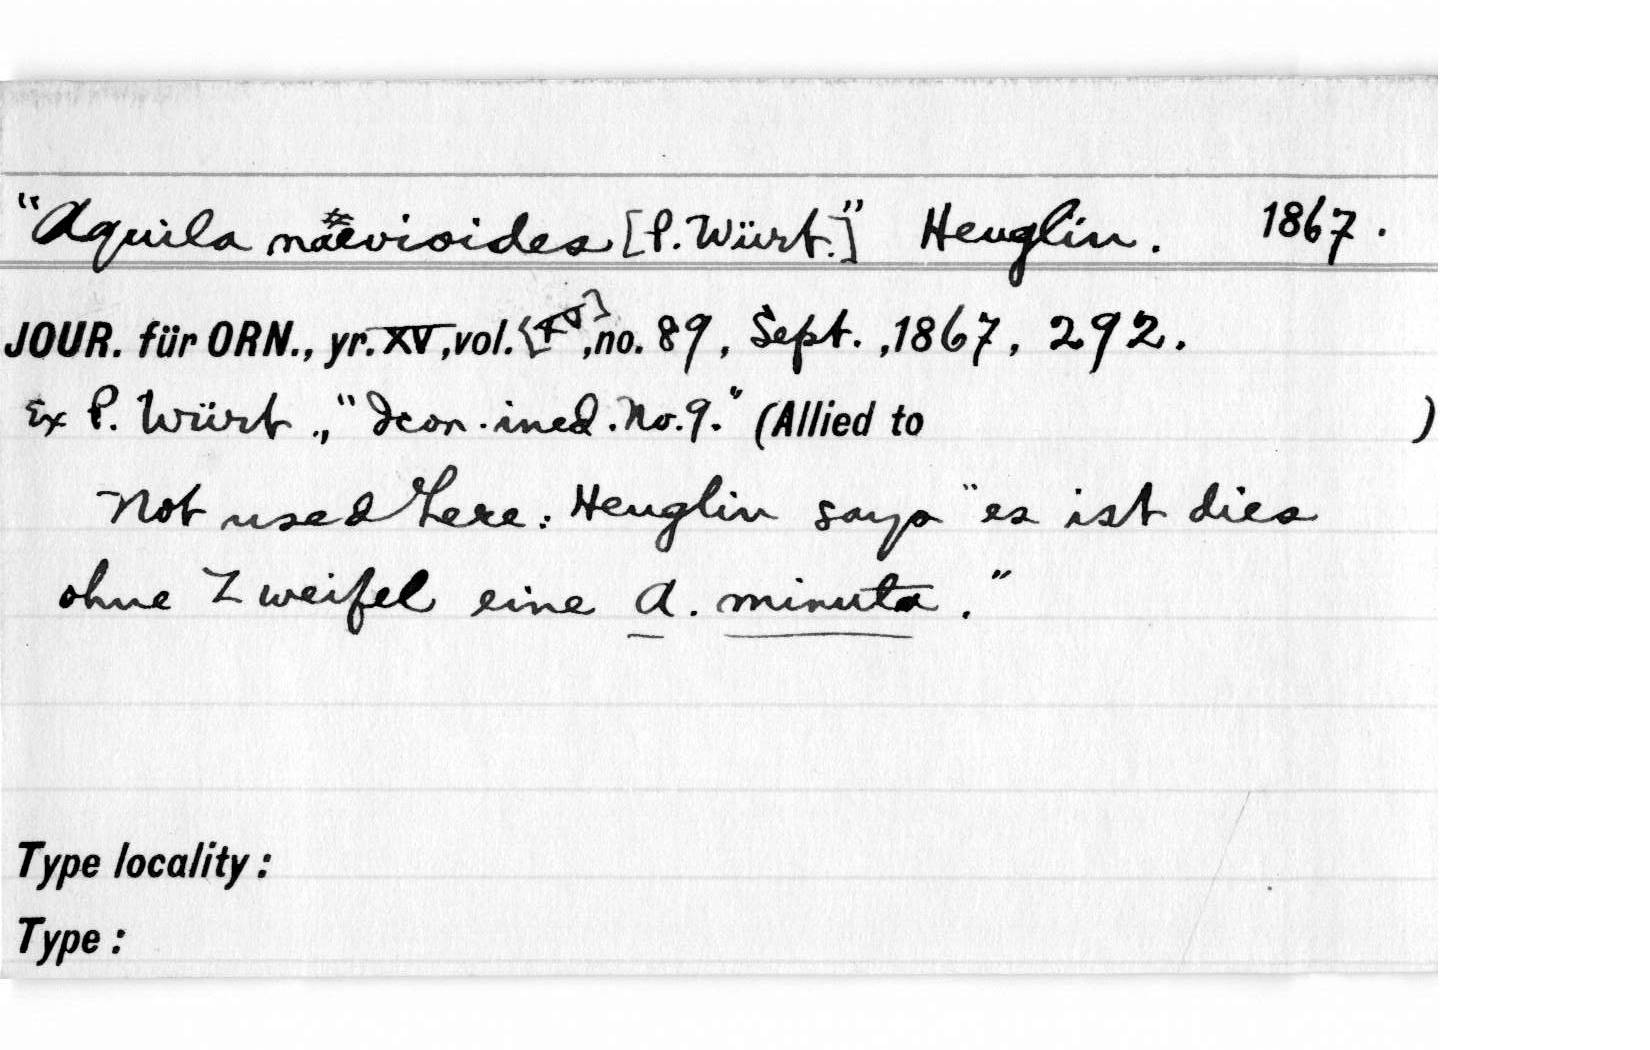 "Aquila naevioides [P. Würt.]" Heuglin. 1867.
JOUR. für ORN., yr. XV, vol. [XV], no. 89, Sept., 1867, 292.
Ex P. Würt., "Icon. ined. No. 9." (Allied to )
Not used here: Heuglin says "es ist dies
ohne Zweifel eine A. minuta."
Type locality:
Type: